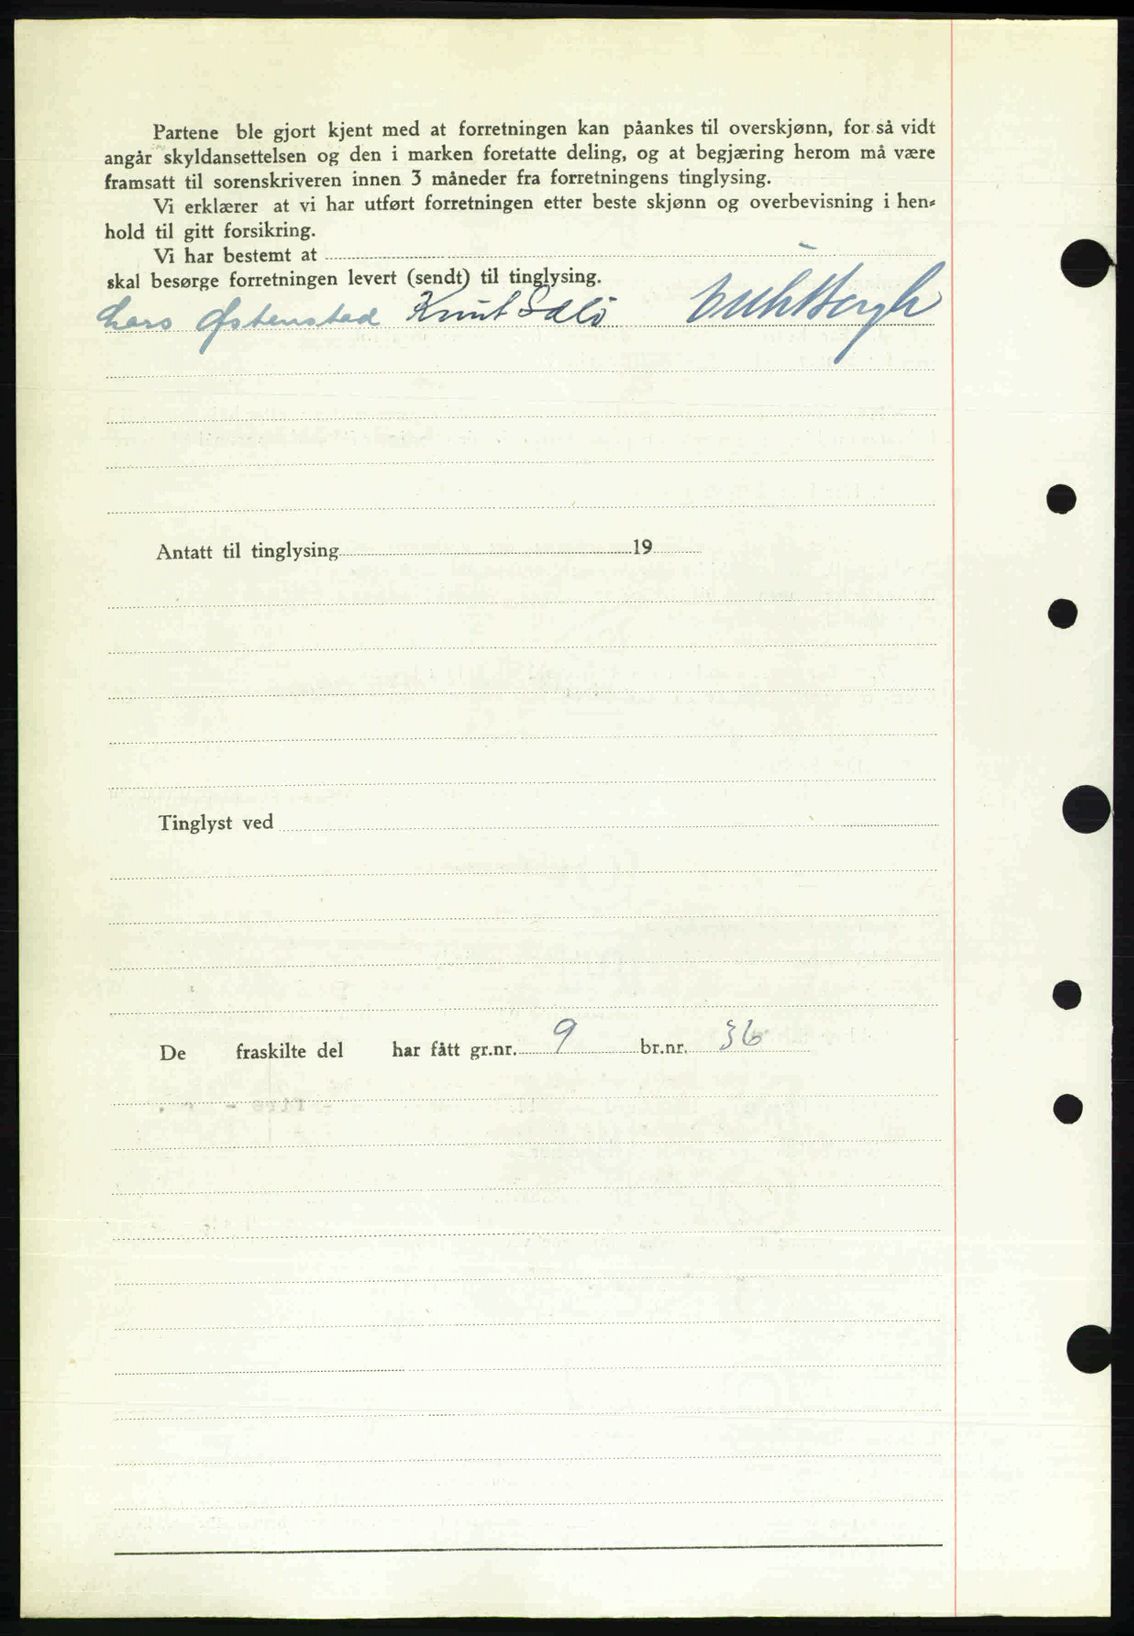 Partene ble gjort kjent med at forretningen kan påankes til overskjønn, for så vidt
angår skyldansettelsen og den i marken foretatte deling, og at begjæring herom må være
framsatt til sorenskriveren innen 3 måneder fra forretningens tinglysing.
Vi erklærer at vi har utført forretningen etter beste skjønn og overbevisning i hen-
hold til gitt forsikring.
Vi har bestemt at
skal besørge forretningen levert (sendt) til tinglysing.
Lars Østenstad Knut
Antatt til tinglysing 19
Tinglyst ved
De fraskilte del har fått gr.nr. 9 br.nr. 36